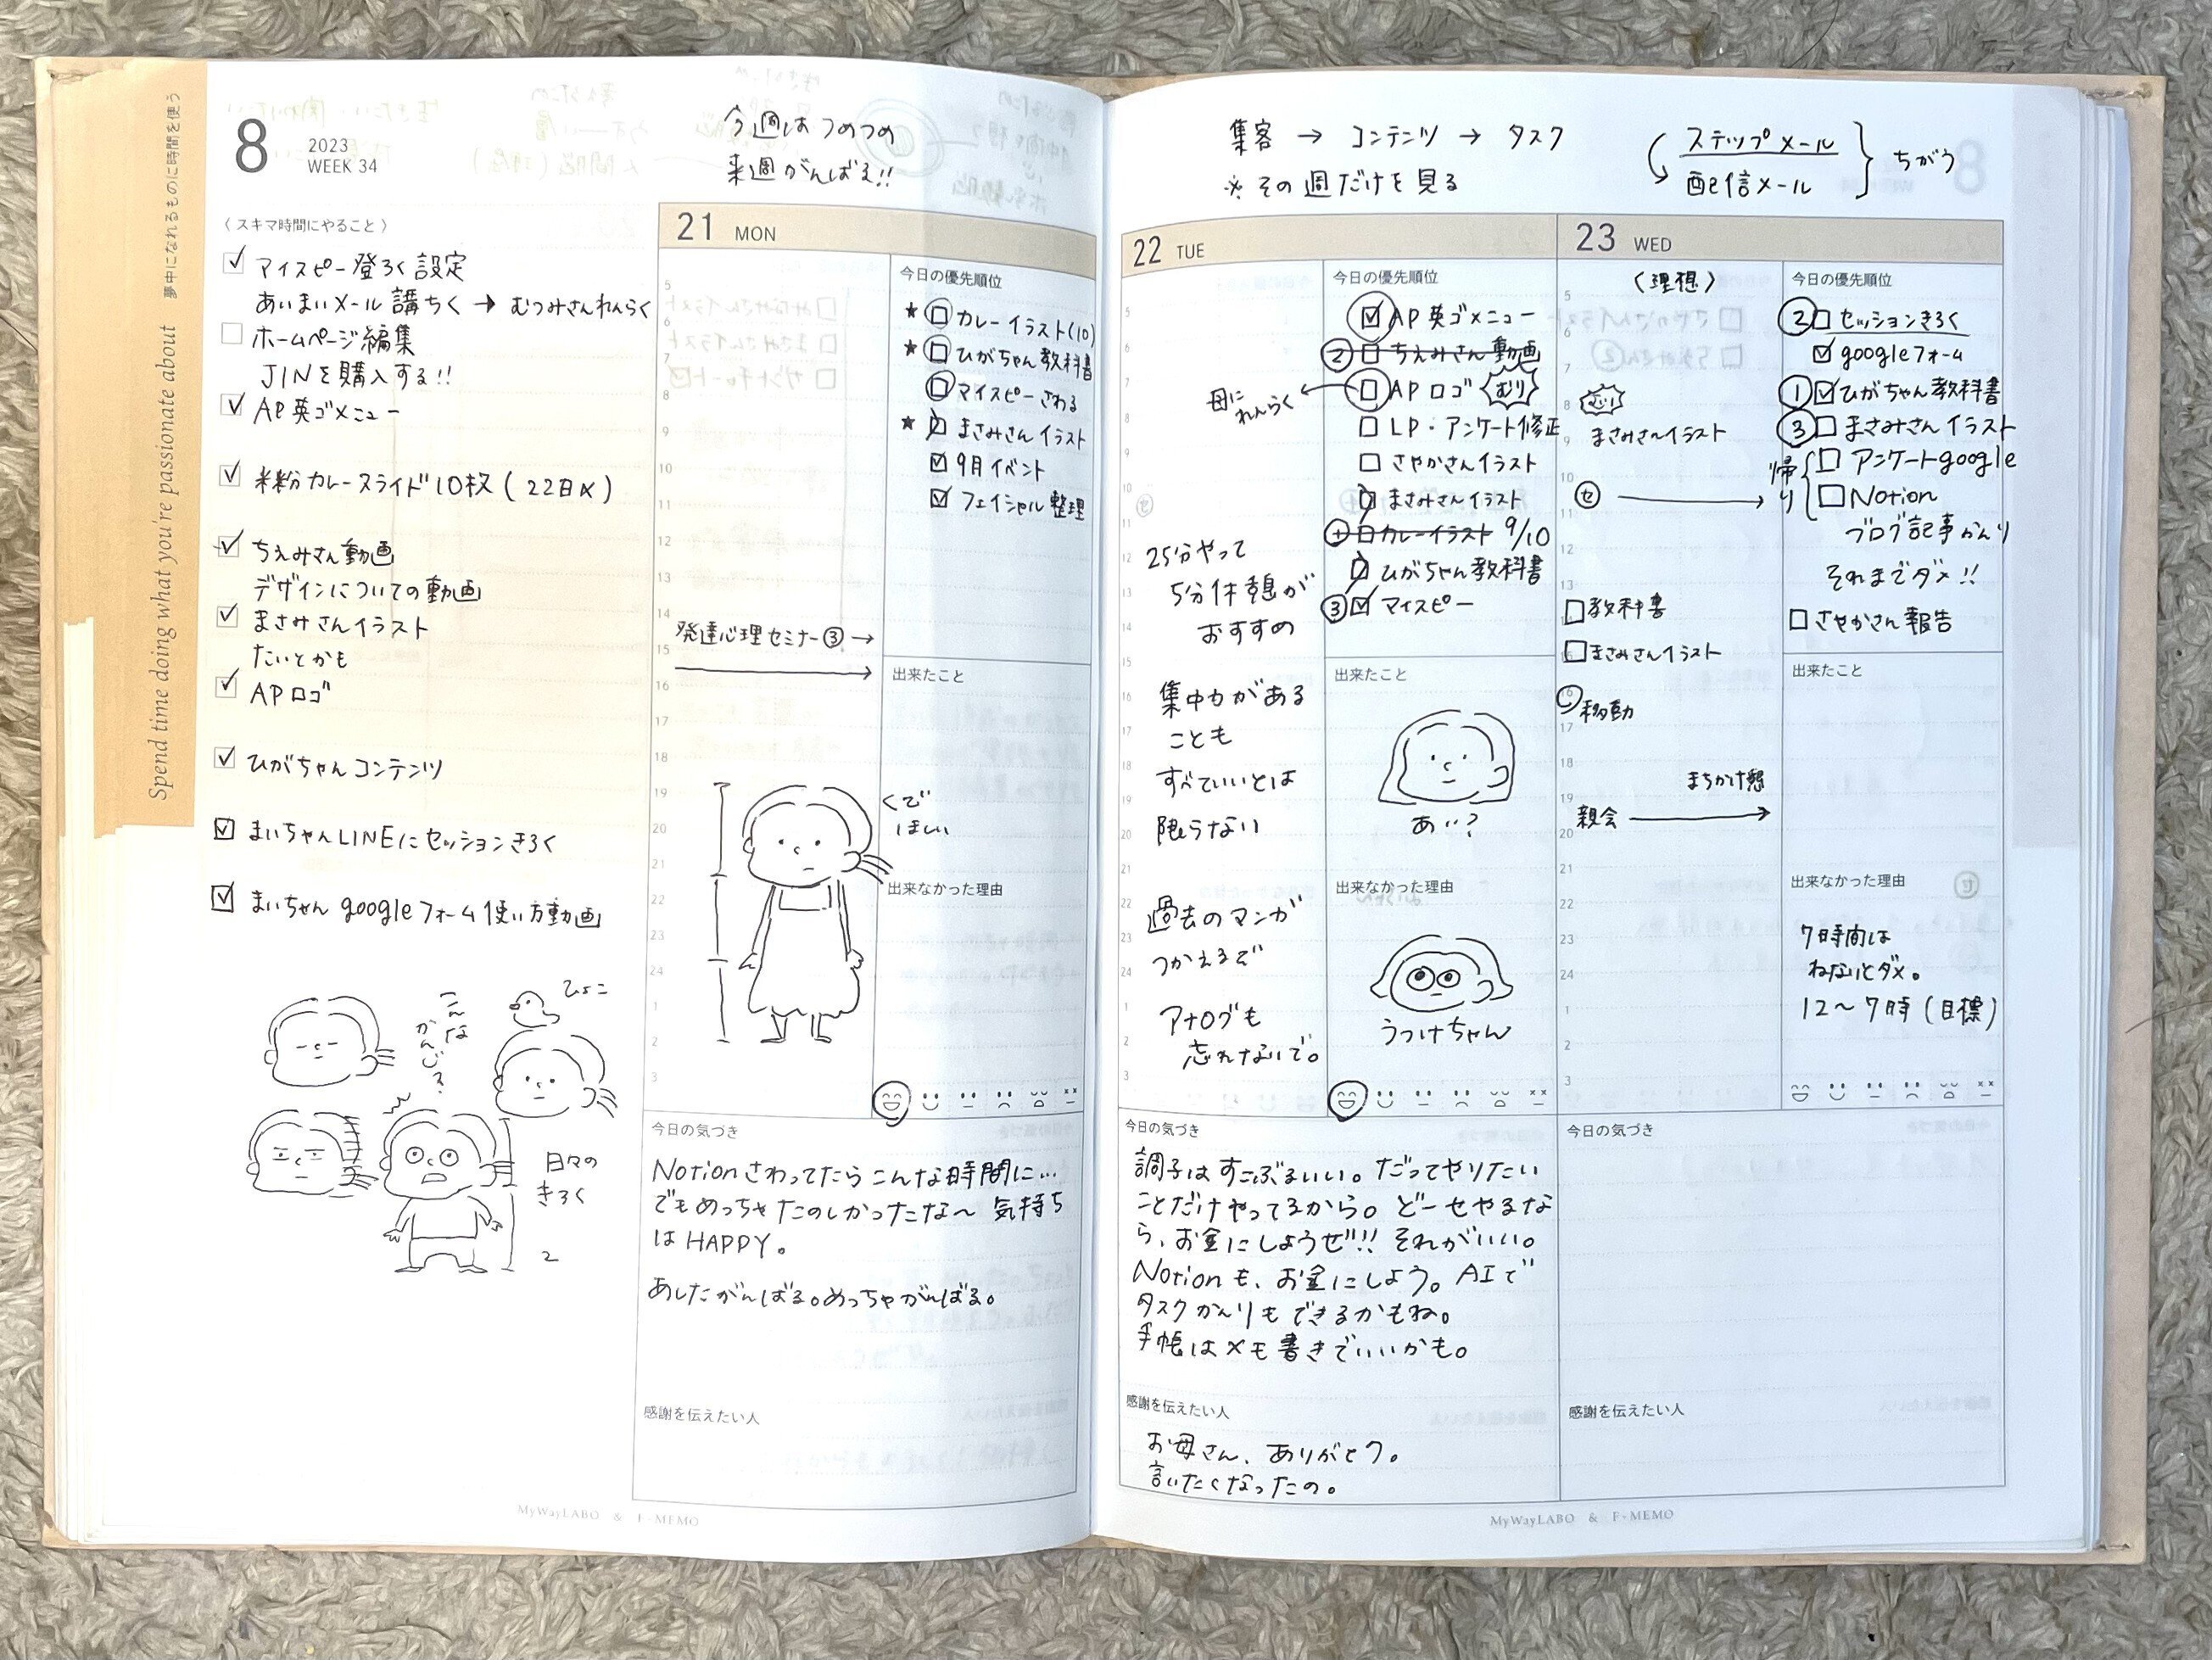 夢中になれるものに時間を使う
Spend time doing what you're passionate about
8
2023
WEEK 34
今週はつめつめ
来週がんばる!!
〈 スキマ時間にやること 〉
マイスピー登ろく設定
あいまいメール講ちく → むつみさんれんらく
ホームページ編集
JINを購入する!!
AP英ゴメニュー
米粉カレースライド10枚(22日〆)
ちえみさん動画
デザインについての動画
まさみさんイラスト
たいとかも
APロゴ
ひがちゃんコンテンツ
まいちゃんLINEにセッションきろく
まいちゃん googleフォーム使い方動画
こんな
かんじ?
ひよこ
日々の
きろく
2
21 MON
5
6
7
8
9
10
11
12
13
14
15
16
17
18
19
20
21
22
23
24
1
2
3
発達心理セミナー③→
今日の優先順位
★ カレーイラスト(10)
★ ひがちゃん教科書
マイスピーさわる
★ まさみさんイラスト
9月イベント
フェイシャル整理
出来たこと
くで
ほしい
出来なかった理由
今日の気づき
Notionさわってたらこんな時間に…
でもめっちゃたのしかったな〜 気持ち
はHAPPY。
あしたがんばる。めっちゃがんばる。
感謝を伝えたい人
MyWayLABO & F-MEMO
集客 → コンテンツ → タスク
※その週だけを見る
ステップメール
配信メール
ちがう
22 TUE
5
6
7
8
9
10
11
12
13
14
15
16
17
18
19
20
21
22
23
24
1
2
3
母に
れんらく
25分やって
5分休憩が
おすすめ
集中力がある
ことも
すべていいとは
限らない
過去のマンガ
つかえるで
アナログも
忘れないで。
今日の優先順位
AP英ゴメニュー
② ちえみさん動画
APロゴ むり
LP・アンケート修正
さやかさんイラスト
まさみさんイラスト
カレーイラスト 9/10
ひがちゃん教科書
③ マイスピー
出来たこと
あい?
出来なかった理由
うつけちゃん
今日の気づき
調子はすこぶるいい。だってやりたい
ことだけやってるから。どーせやるな
ら、お金にしようぜ!! それがいい。
Notionも、お金にしよう。AIで
タスクかんりもできるかもね。
手帳はメモ書きでいいかも。
感謝を伝えたい人
お母さん、ありがとう。
言いたくなったの。
23 WED
(理想)
5
6
7
8
9
10
11
12
13
17
18
19
20
21
22
23
24
1
2
3
むり
まさみさんイラスト
セ
教科書
まさみさんイラスト
移動
まちかけ懇
親会
今日の優先順位
② セッションきろく
googleフォーム
① ひがちゃん教科書
③ まさみさんイラスト
帰り
アンケートgoogle
Notion
ブログ記事かんり
それまでダメ!!
さやかさん報告
出来たこと
出来なかった理由
7時間は
ねないとダメ。
12〜7時(目標)
今日の気づき
感謝を伝えたい人
MyWayLABO & F-MEMO